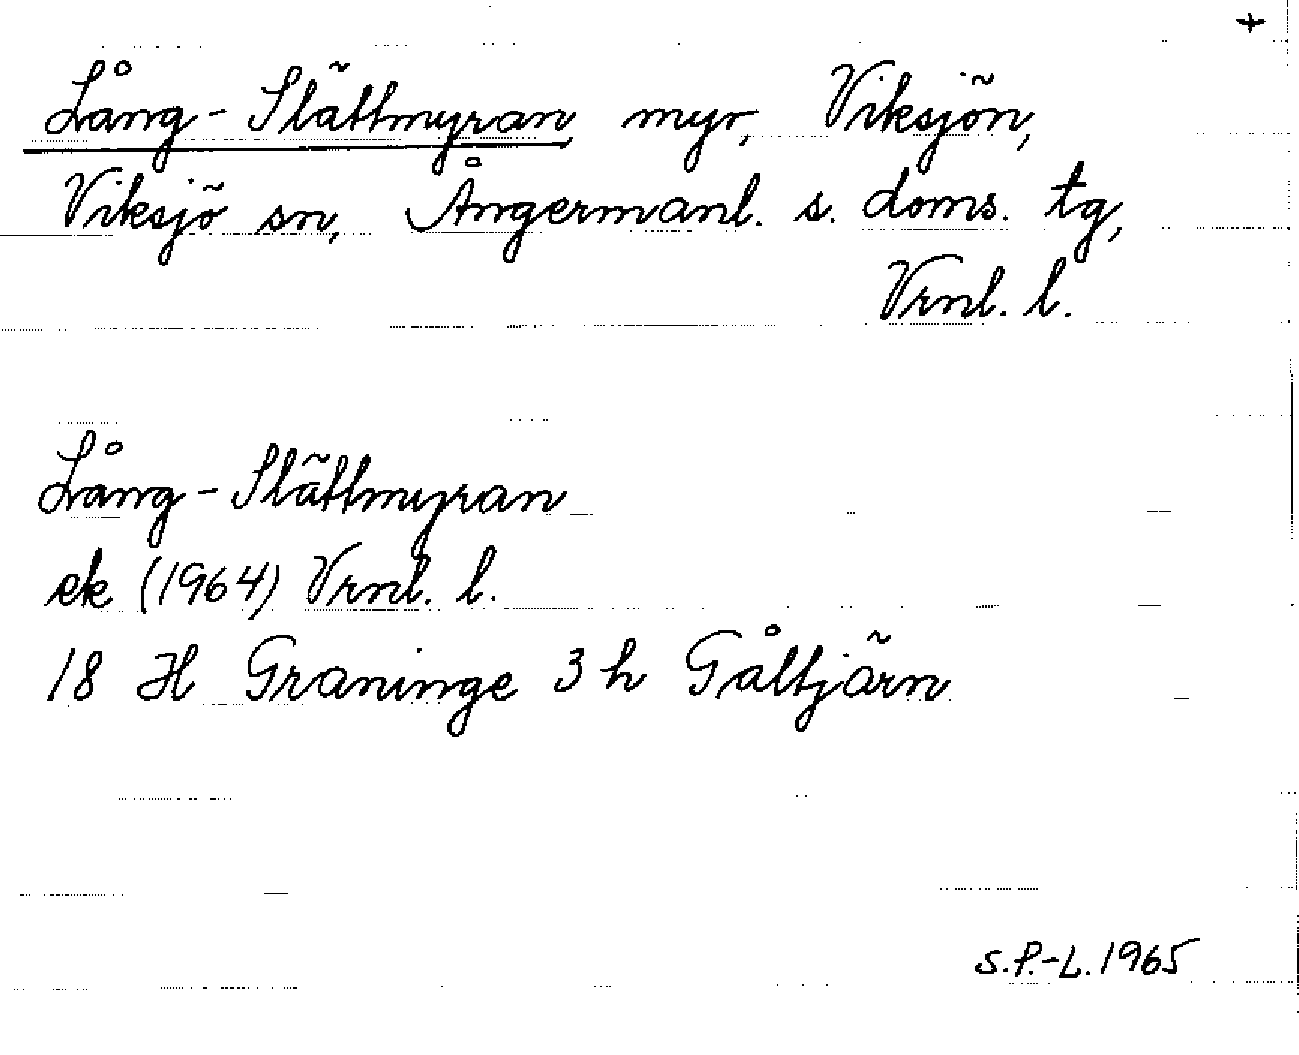 +
Lång-Slättmyran, myr, Viksjön,
Viksjö sn, Ångermanl. s. doms. tg,
Vrnl. l.
Lång-Slättmyran
ek (1964) Vrnl. l.
18 H Graninge 3 h Gåltjärn
S.P.-L. 1965